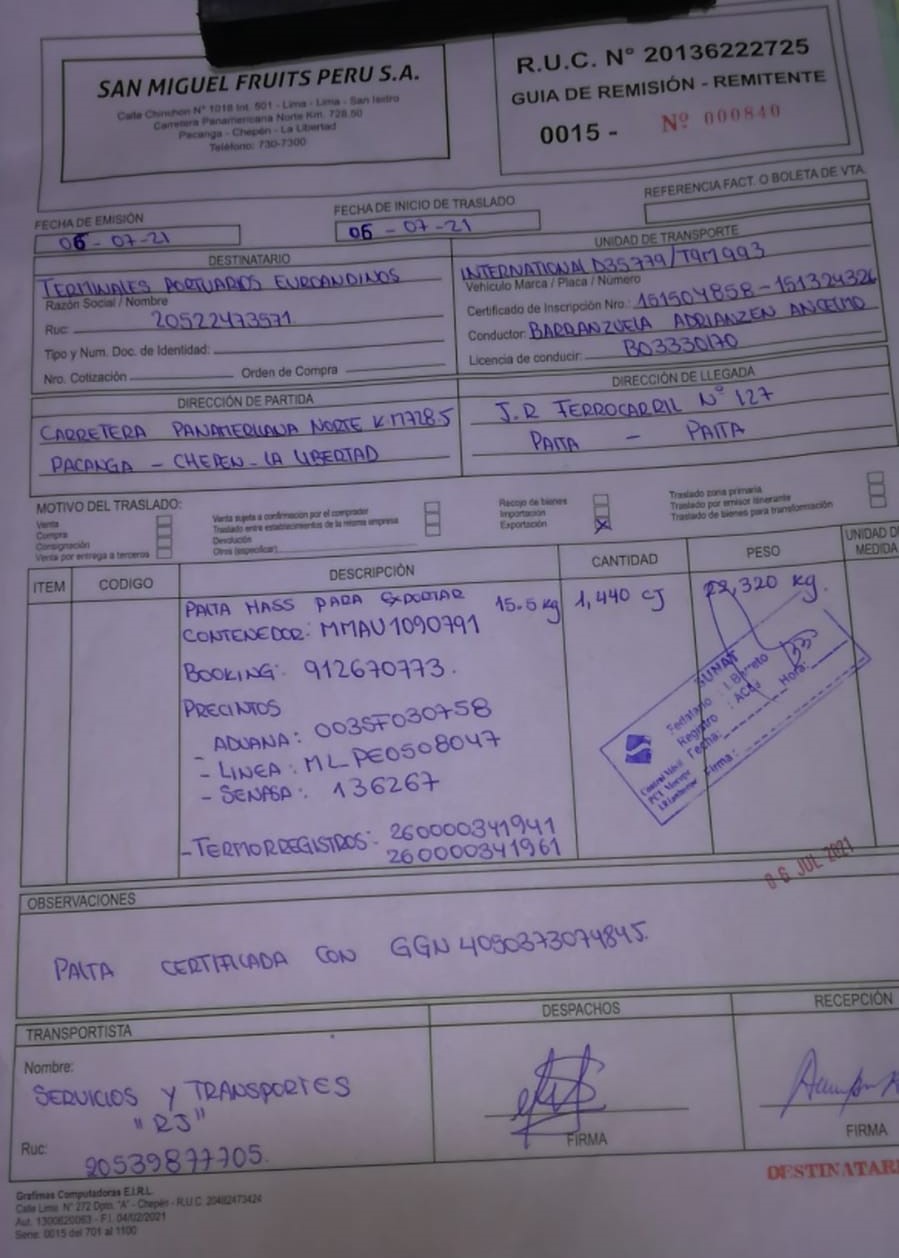 SAN MIGUEL FRUITS PERU S.A.
Calle Chinchon Nº 1018 Int. 501 - Lima - Lima - San Isidro
Carretera Panamericana Norte Km. 728.50
Pacanga - Chepén - La Libertad
Teléfono: 730-7300
R.U.C. Nº 20136222725
GUIA DE REMISIÓN - REMITENTE
0015 - Nº 000840
FECHA DE EMISIÓN
06-07-21
FECHA DE INICIO DE TRASLADO
06-07-21
REFERENCIA FACT. O BOLETA DE VTA.
DESTINATARIO
TERMINALES PORTUARIOS EUROANDINOS
Razón Social / Nombre
Ruc: 20522473571
Tipo y Num. Doc. de Identidad:
Nro. Cotización Orden de Compra
UNIDAD DE TRANSPORTE
INTERNATIONAL D3S779/T9M993
Vehículo Marca / Placa / Número
Certificado de Inscripción Nro.: 151504858-151324326
Conductor: BARRANZUELA ADRIANZEN ANCELMO
Licencia de conducir: B03330170
DIRECCIÓN DE PARTIDA
CARRETERA PANAMERICANA NORTE K.M728.5
PACANGA - CHEPEN - LA LIBERTAD
DIRECCIÓN DE LLEGADA
J.R FERROCARRIL Nº 127
PAITA - PAITA
MOTIVO DEL TRASLADO:
Venta
Compra
Consignación
Venta por entrega a terceros
Venta sujeta a confirmación por el comprador
Traslado entre establecimientos de la misma empresa
Devolución
Otros (especificar)
Recojo de bienes
Importación
Exportación X
Traslado zona primaria
Traslado por emisor itinerante
Traslado de bienes para transformación
ITEM CODIGO DESCRIPCIÓN CANTIDAD PESO UNIDAD DE MEDIDA
PALTA HASS PARA EXPORTAR 15.5 kg 1,440 CJ 22,320 kg.
CONTENEDOR: MMAU1090791
BOOKING: 912670773.
PRECINTOS
ADUANA: 003SF030758
- LINEA: MLPE0508047
- SENASA: 136267
- TERMORREGISTROS: 260000341941
260000341961
SUNAT
Fedatario : I. Barreto
Registro : AC
Fecha: Hora:
Firma:
Control Móvil
06 JUL 2021
OBSERVACIONES
PALTA CERTIFICADA CON GGN 4050373074845.
TRANSPORTISTA
Nombre:
SERVICIOS Y TRANSPORTES
"RJ"
Ruc: 20539877705.
DESPACHOS
FIRMA
RECEPCIÓN
FIRMA
DESTINATARI
Grafimas Computadoras E.I.R.L.
Calle Lima N° 272 Dpto. "A" - Chepén - R.U.C. 20482473424
Aut. 1300620063 - F.I. 04/02/2021
Serie: 0015 del 701 al 1100